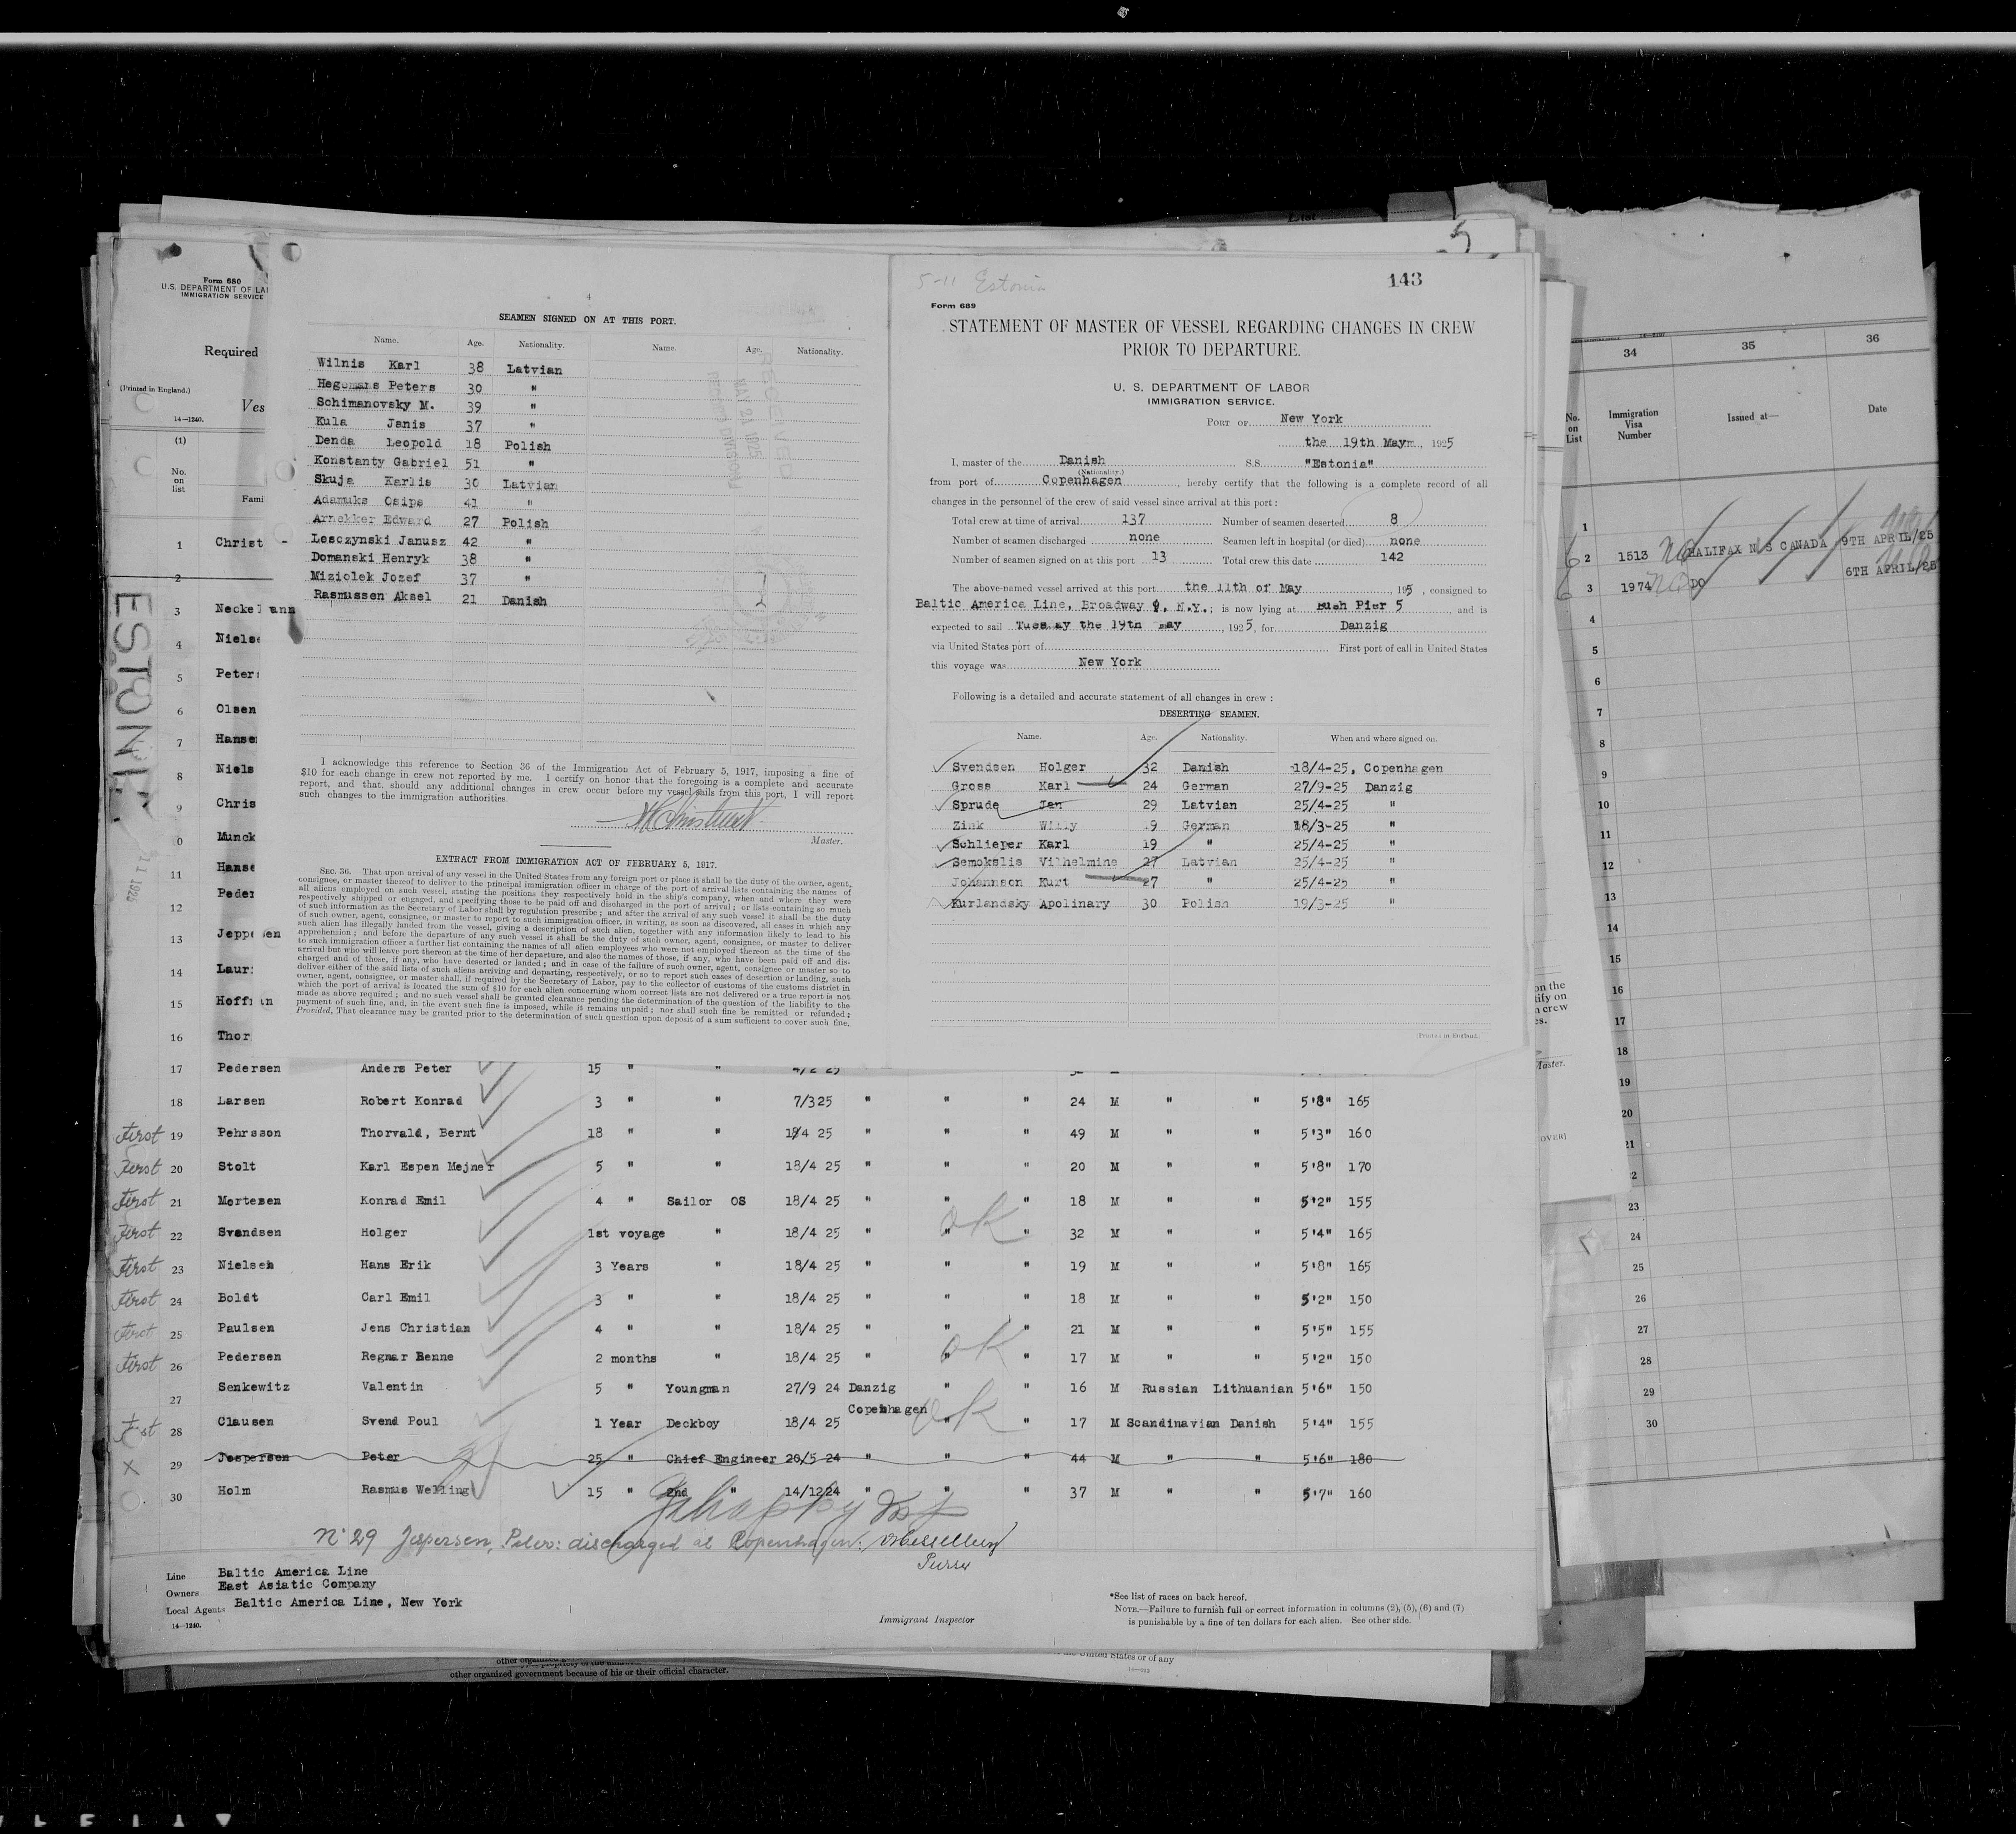 List
5
Form 680
U.S. DEPARTMENT OF LA
IMMIGRATION SERVICE
Required
(Printed in England.)
Ves
14—1240.
(1)
No.
on
list
Fami
ESTONI
1 Christ -
2
3 Neckelmann
4 Niels
5 Peter
6 Olsen
7 Hanse
8 Niels
9 Chris
0 Munck
11 Hanse
12 Peder
13 Jeppesen
14 Laur
15 Hoffman
16 Thor
4
SEAMEN SIGNED ON AT THIS PORT.
Name. Age. Nationality. Name. Age. Nationality.
Wilnis Karl 38 Latvian
Hegomans Peters 30 "
Schimanovsky M. 39 "
Kula Janis 37 "
Denda Leopold 18 Polish
Konstanty Gabriel 51 "
Skuja Karlis 30 Latvian
Adamuks Osips 41 "
Arnekker Edward 27 Polish
Lesczynski Janusz 42 "
Domanski Henryk 38 "
Miziolek Jozef 37 "
Rasmussen Aksel 21 Danish
RECEIVED
MAY 21 1925
I acknowledge this reference to Section 36 of the Immigration Act of February 5, 1917, imposing a fine of
$10 for each change in crew not reported by me. I certify on honor that the foregoing is a complete and accurate
report, and that, should any additional changes in crew occur before my vessel sails from this port, I will report
such changes to the immigration authorities.
Master.
EXTRACT FROM IMMIGRATION ACT OF FEBRUARY 5, 1917.
SEC. 36. That upon arrival of any vessel in the United States from any foreign port or place it shall be the duty of the owner, agent,
consignee, or master thereof to deliver to the principal immigration officer in charge of the port of arrival lists containing the names of
all aliens employed on such vessel, stating the positions they respectively hold in the ship's company, when and where they were
respectively shipped or engaged, and specifying those to be paid off and discharged in the port of arrival; or lists containing so much
of such information as the Secretary of Labor shall by regulation prescribe; and after the arrival of any such vessel it shall be the duty
of such owner, agent, consignee, or master to report to such immigration officer, in writing, as soon as discovered, all cases in which any
such alien has illegally landed from the vessel, giving a description of such alien, together with any information likely to lead to his
apprehension; and before the departure of any such vessel it shall be the duty of such owner, agent, consignee, or master to deliver
to such immigration officer a further list containing the names of all alien employees who were not employed thereon at the time of the
arrival but who will leave port thereon at the time of her departure, and also the names of those, if any, who have been paid off and dis-
charged and of those, if any, who have deserted or landed; and in case of the failure of such owner, agent, consignee or master so to
deliver either of the said lists of such aliens arriving and departing, respectively, or so to report such cases of desertion or landing, such
owner, agent, consignee, or master shall, if required by the Secretary of Labor, pay to the collector of customs of the customs district in
which the port of arrival is located the sum of $10 for each alien concerning whom correct lists are not delivered or a true report is not
made as above required; and no such vessel shall be granted clearance pending the determination of the question of the liability to the
payment of such fine, and, in the event such fine is imposed, while it remains unpaid; nor shall such fine be remitted or refunded;
Provided, That clearance may be granted prior to the determination of such question upon deposit of a sum sufficient to cover such fine.
5-11 Estonia
143
Form 689
STATEMENT OF MASTER OF VESSEL REGARDING CHANGES IN CREW
PRIOR TO DEPARTURE.
U. S. DEPARTMENT OF LABOR
IMMIGRATION SERVICE.
PORT OF New York
the 19th May, 1925
I, master of the Danish S.S. "Estonia"
(Nationality.)
from port of Copenhagen, hereby certify that the following is a complete record of all
changes in the personnel of the crew of said vessel since arrival at this port:
Total crew at time of arrival 137 Number of seamen deserted 8
Number of seamen discharged none Seamen left in hospital (or died) none
Number of seamen signed on at this port 13 Total crew this date 142
The above-named vessel arrived at this port the 11th of May 195, consigned to
Baltic America Line, Broadway 9, N.Y.; is now lying at Bush Pier 5, and is
expected to sail Tuesday the 19th May, 1925, for Danzig
via United States port of First port of call in United States
this voyage was New York
Following is a detailed and accurate statement of all changes in crew:
DESERTING SEAMEN.
Name. Age. Nationality. When and where signed on.
Svendsen Holger 32 Danish 18/4-25, Copenhagen
Gross Karl 24 German 27/9-25 Danzig
Sprude Jan 29 Latvian 25/4-25 "
Zink Willy 19 German 18/3-25 "
Schlieper Karl 19 " 25/4-25 "
Semokslis Vilhelmine 27 Latvian 25/4-25 "
Johannson Kurt 27 " 25/4-25 "
Kurlandsky Apolinary 30 Polish 19/3-25 "
(Printed in England.)
17 Pedersen Anders Peter 15 " "
18 Larsen Robert Konrad 3 " " 7/325 " " " 24 M " " 5'8" 165
First 19 Pehrsson Thorvald, Bernt 18 " " 18/4 25 " " " 49 M " " 5'3" 160
First 20 Stolt Karl Espen Mejner 5 " " 18/4 25 " " " 20 M " " 5'8" 170
First 21 Mortesen Konrad Emil 4 " Sailor OS 18/4 25 " " " 18 M " " 5'2" 155
First 22 Svendsen Holger 1st voyage " 18/4 25 " ok " 32 M " " 5'4" 165
First 23 Nielsen Hans Erik 3 Years " 18/4 25 " " " 19 M " " 5'8" 165
First 24 Boldt Carl Emil 3 " " 18/4 25 " " " 18 M " " 5'2" 150
First 25 Paulsen Jens Christian 4 " " 18/4 25 " " " 21 M " " 5'5" 155
First 26 Pedersen Regnar Benne 2 months " 18/4 25 " ok " 17 M " " 5'2" 150
27 Senkewitz Valentin 5 " Youngman 27/9 24 Danzig " " 16 M Russian Lithuanian 5'6" 150
First 28 Clausen Svend Poul 1 Year Deckboy 18/4 25 Copenhagen ok " 17 M Scandinavian Danish 5'4" 155
X 29 Jespersen Peter 25 " Chief Engineer 20/5 24 " " " 44 M " " 5'6" 180
30 Holm Rasmus Welling 15 " 2nd " 14/1224 " " " 37 M " " 5'7" 160
No 29 Jespersen, Peter: discharged at Copenhagen.
Purser
Line Baltic America Line
Owners East Asiatic Company
Local Agents Baltic America Line, New York
14—1240.
Immigrant Inspector
*See list of races on back hereof.
NOTE.—Failure to furnish full or correct information in columns (2), (5), (6) and (7)
is punishable by a fine of ten dollars for each alien. See other side.
other organized government because of his or their official character.
the United States or of any
34 35 36
No.
on
List
Immigration
Visa
Number
Issued at—
Date
1
2 1513 HALIFAX N S CANADA 9TH APRIL/25
3 1974 DO 6TH APRIL/25
4
5
6
7
8
9
10
11
12
13
14
15
16
17
18
19
20
21
2
23
24
25
26
27
28
29
30
on the
tify on
n crew
es.
Master.
OVER]